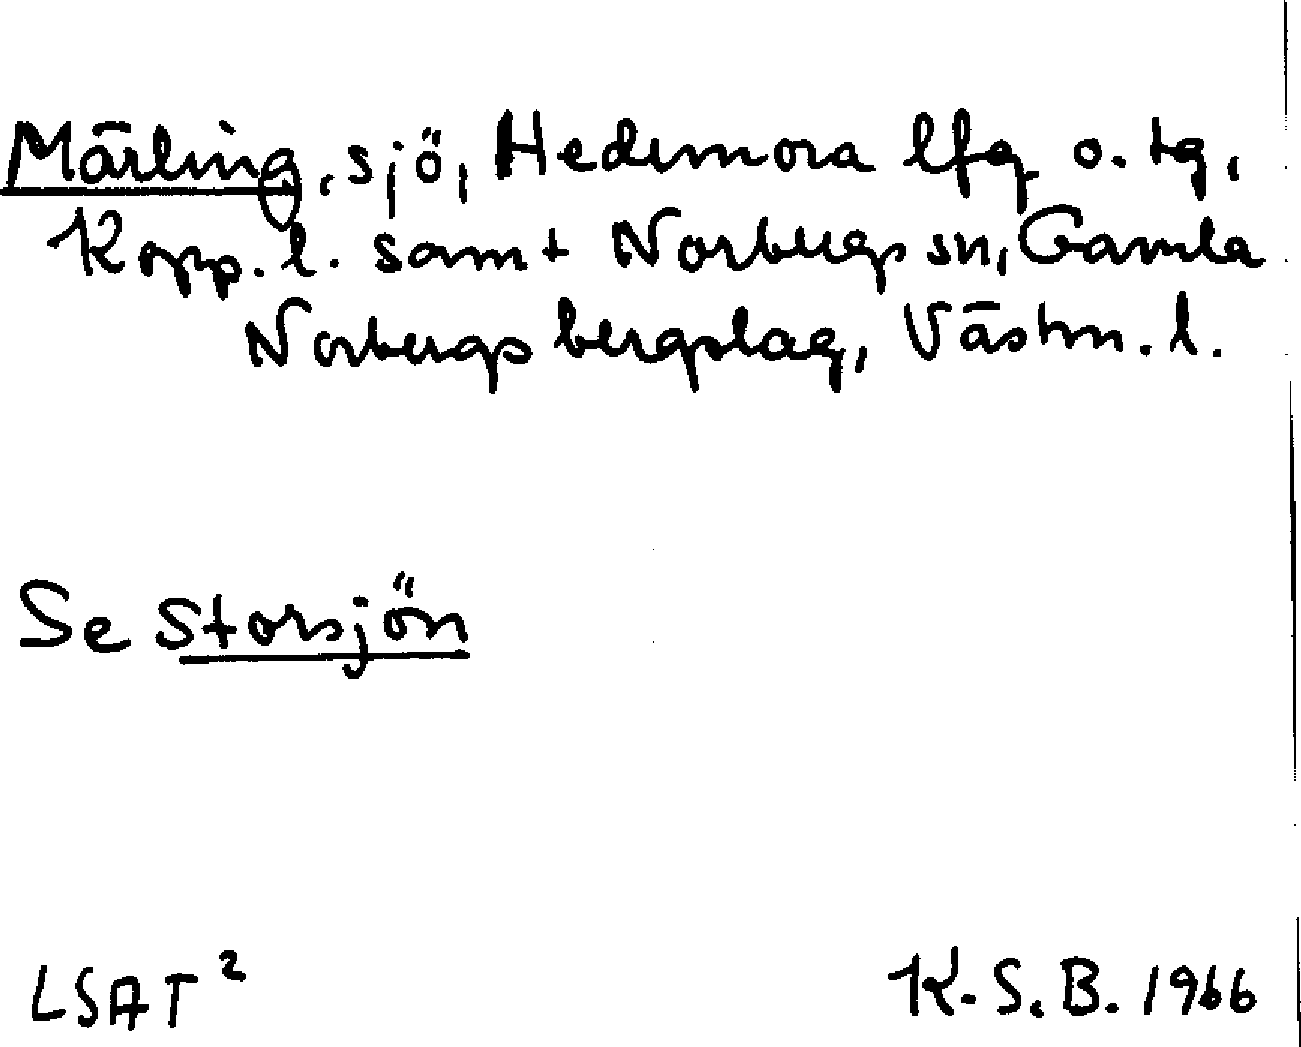 Märling, sjö, Hedemora lfg o. tg,
Kopp. l. samt Norbergs sn, Gamla
Norbergs bergslag, Västm. l.
Se Storsjön
LSAT² K.S.B. 1966